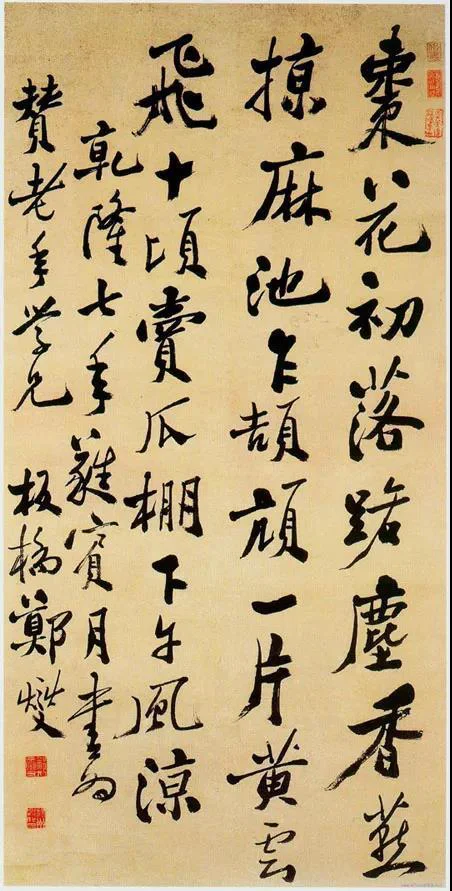 棗花初落路塵香燕
掠麻池乍頡頏一片黃雲
飛十頃賣瓜棚下午風涼
乾隆七年蕤賓月書為
贊老年學兄
板橋鄭燮